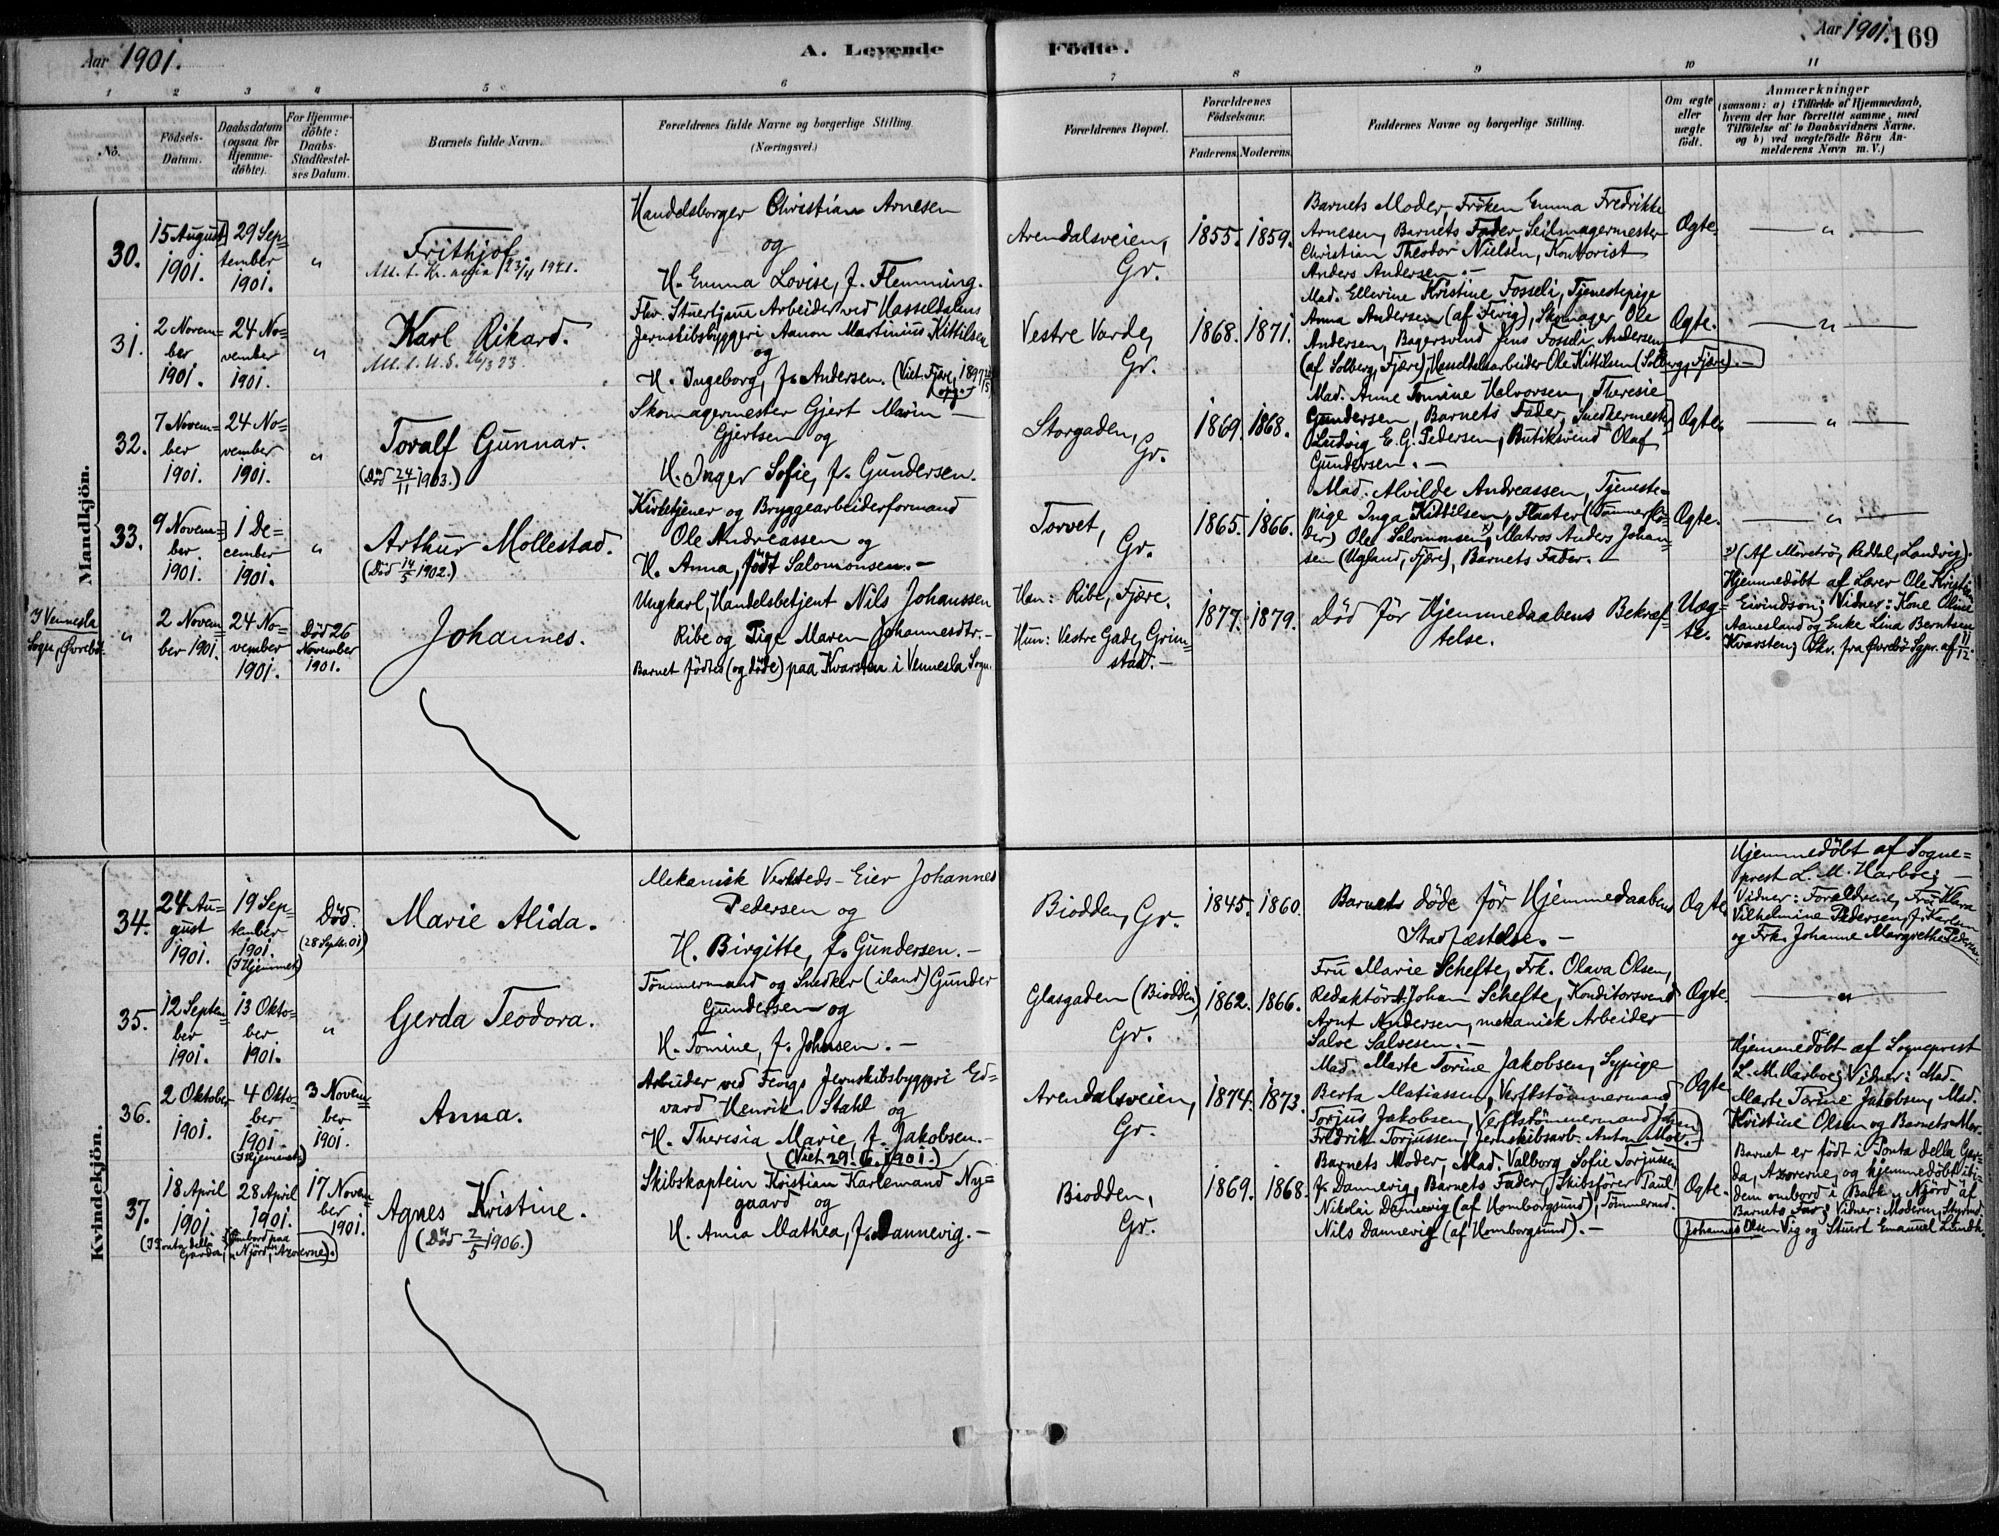 Aar 1901.
A. Levende
Födte.
Aar 1901.
169
1
2
3
4
5
6
7
8
9
10
11
No.
Födsels-
Datum.
Daabsdatum
(ogsaa for
Hjemme-
döbte).
For Hjemme-
döbte:
Daabs-
Stadfæstel-
ses Datum.
Barnets fulde Navn.
Forældrenes fulde Navne og borgerlige Stilling.
(Næringsvei.)
Forældrenes Bopæl.
Forældrenes
Födselsaar.
Faderens.
Moderens.
Faddernes Navne og borgerlige Stilling.
Om ægte
eller
uægte
födt.
Anmærkninger
(saasom: a) i Tilfælde af Hjemmedaab,
hvem der har forrettet samme, med
Tilföielse af to Daabsvidners Navne.
og b) ved uægtefödte Börn An-
melderens Navn m. V.)
Mandkjön.
30.
15 August
1901.
29 Sep=
tember
1901.
"
Frithjof
23/4 1921.
Handelsborger Christian Arnesen
og
H. Emma Lovise, f. Flemming.
Arendalsveien,
Gr.
1855.
1859.
Barnets Moder, Fröken Emma Fredrikke
Arnesen, Barnets Fader, Seilmagermester
Christian Theodor Nielsen, Kontorist
Anders Andersen. —
Ægte.
— " —
31.
2 Novem=
ber
1901.
24 No=
vember
1901.
"
Karl Rikard.
Att. t. U.S. 26/3 23
Arbeider ved Hasseldalens
Jernskibsbyggeri Aanon Martinius Kittilsen
og
H. Ingeborg, f. Andersen. (Viet Fjære, 1897
Vestre Varde,
Gr.
1868.
1871.
Mad. Ellevine Kristine Fosseli, Tjenestepige
Anna Andersen (af Fevig), Skomager Ole
Andersen, Bagersvend Jens Fosseli Andersen
(af Solberg, Fjære), Ole Kittilsen (Solberg, Fjære). —
Ægte.
— " —
32.
7 Novem=
ber
1901.
24 No=
vember
1901.
"
Toralf Gunnar.
(Död 24/11 1903.)
Skomagermester Gjert Marin —
Gjertsen og
H. Inger Sofie, f. Gundersen.
Storgaden,
Gr.
1869.
1868.
Mad. Anne Tomine Halvorsen, Theresie
Gundersen, Barnets Fader, Snedkermester
Ludvig E. G. Pedersen, Butiksvend Olaf
Gundersen. —
Ægte.
— " —
33.
9 Novem=
ber
1901.
1 De=
cember
1901.
"
Arthur Mollestad.
(Död 14/5 1902.)
Kirketjener og Bryggearbeiderformand
Ole Andreassen og
H. Anna, født Salomonsen. —
Torvet,
Gr.
1865.
1866.
Mad. Alvilde Andreassen, Tjeneste=
pige Inga Kittilsen, Fløater (Tømmerflø=
der) Ole Salomonsen, x) Matros Anders Johan=
sen (Ugland, Fjære), Barnets Fader. —
Ægte.
— " —
x) (Af Reddal, Landvig).
I Vennesla
Sogn, Øvrebö
"
2 Novem=
ber 1901.
24 No=
vember
1901.
Död 26
November
1901.
Johannes.
Ungkarl, Handelsbetjent Nils Johanssen
Ribe og Pige Maren Johannesdtr. —
Barnet fødtes (og döde) paa Kvarsten i Vennesla Sogn.
Han: Ribe, Fjære.
Hun: Vestre Gade, Grim=
stad. —
1877.
1879.
Död før Hjemmedaabens Bekræf=
telse.
Uæg=
te.
Hjemmedøbt af Lærer Ole Kristian
Eivindson; Vidner: Kone Oline
Aanesland og Enke Lina Berntsen
Kvarsten; Skr. fra Øvrebö Sgpr. af 11/12.
Kvindekjön.
34.
24 Au=
gust
1901.
19 Sep=
tember
1901.
(I Hjemmet)
Död.
(28 Septr. 01)
Marie Alida.
Mekanisk Verksteds-Eier Johannes
Pedersen og
H. Birgitte, f. Gundersen. —
Biodden, Gr.
1845.
1860.
Barnets döde för Hjemmedaabens
Stadfæstelse. —
Ægte.
Hjemmedøbt af Sogne=
prest L. M. Harboe; —
Vidner: Forældrene, Fru Klara
Vilhelmine Pedersen, f. Karlsen
og Frk. Johanne Margrethe Pedersen.
35.
12 Septem=
ber
1901.
13 Okto=
ber
1901.
"
Gerda Teodora.
Tömmermand og Snedker (iland) Gunder
Gundersen og
H. Tomine, f. Johnsen. —
Glasgaden (Biodden)
Gr.
1862.
1866.
Fru Marie Schefte, Frk. Olava Olsen,
Redaktör A. Johan Schefte, Konditorsvend
Arnt Andersen, mekanisk Arbeider —
Salve Salvesen. —
Ægte.
— " —
36.
2 Oktober
1901.
4 Okto=
ber
1901.
(I Hjemmet)
3 Novem=
ber
1901.
Anna.
Arbeider ved Fevigs Jernskibsbyggeri Ed=
vard Henrik Stahl og
H. Theresia Marie, f. Jakobsen. —
(Viet 29. 6. 1901.)
Arendalsveien,
Gr.
1874.
1873.
Mad. Marte Torine Jakobsen, Sypige
Berta Matiassen, Verftstömmermand
Torjus Jakobsen, Verftstömmermand Johan
Fredrik Torjussen, Jernskibsarb. Anton Moe. —
Ægte.
Hjemmedøbt af Sogneprest
L. M. Harboe; Vidner: Mad.
Marte Torine Jakobsen, Mad.
Kristine Olsen og Barnets Mor.
37.
18 April
1901.
(I Ponta della
Garda,
28 April
1901.
(Ombord paa
"Njörd", Azorerne).
17 Novem=
ber
1901.
Agnes Kristine.
(Död 2/5 1906.)
Skibskaptein Kristian Karlemand Ny=
gaard og
H. Anna Mathea, f. Dannevig. —
Biodden,
Gr.
1869.
1868.
Barnets Moder, Mad. Valborg Sofie Torjussen
f. Dannevig, Barnets Fader, Skibsförer Paul
Nikolai Dannevig (af Homborgsund), Tömmermd.
Nils Dannevig (af Homborgsund). —
Ægte.
Barnet er født i Ponta della Gar=
da, Azorerne, og hjemmedøbt
ombord i Bark "Njörd" af
Barnets Far; Vidner: Moderen, Styrmd.
Johannes Olsen Vig og Stuert Emanuel Lundh.